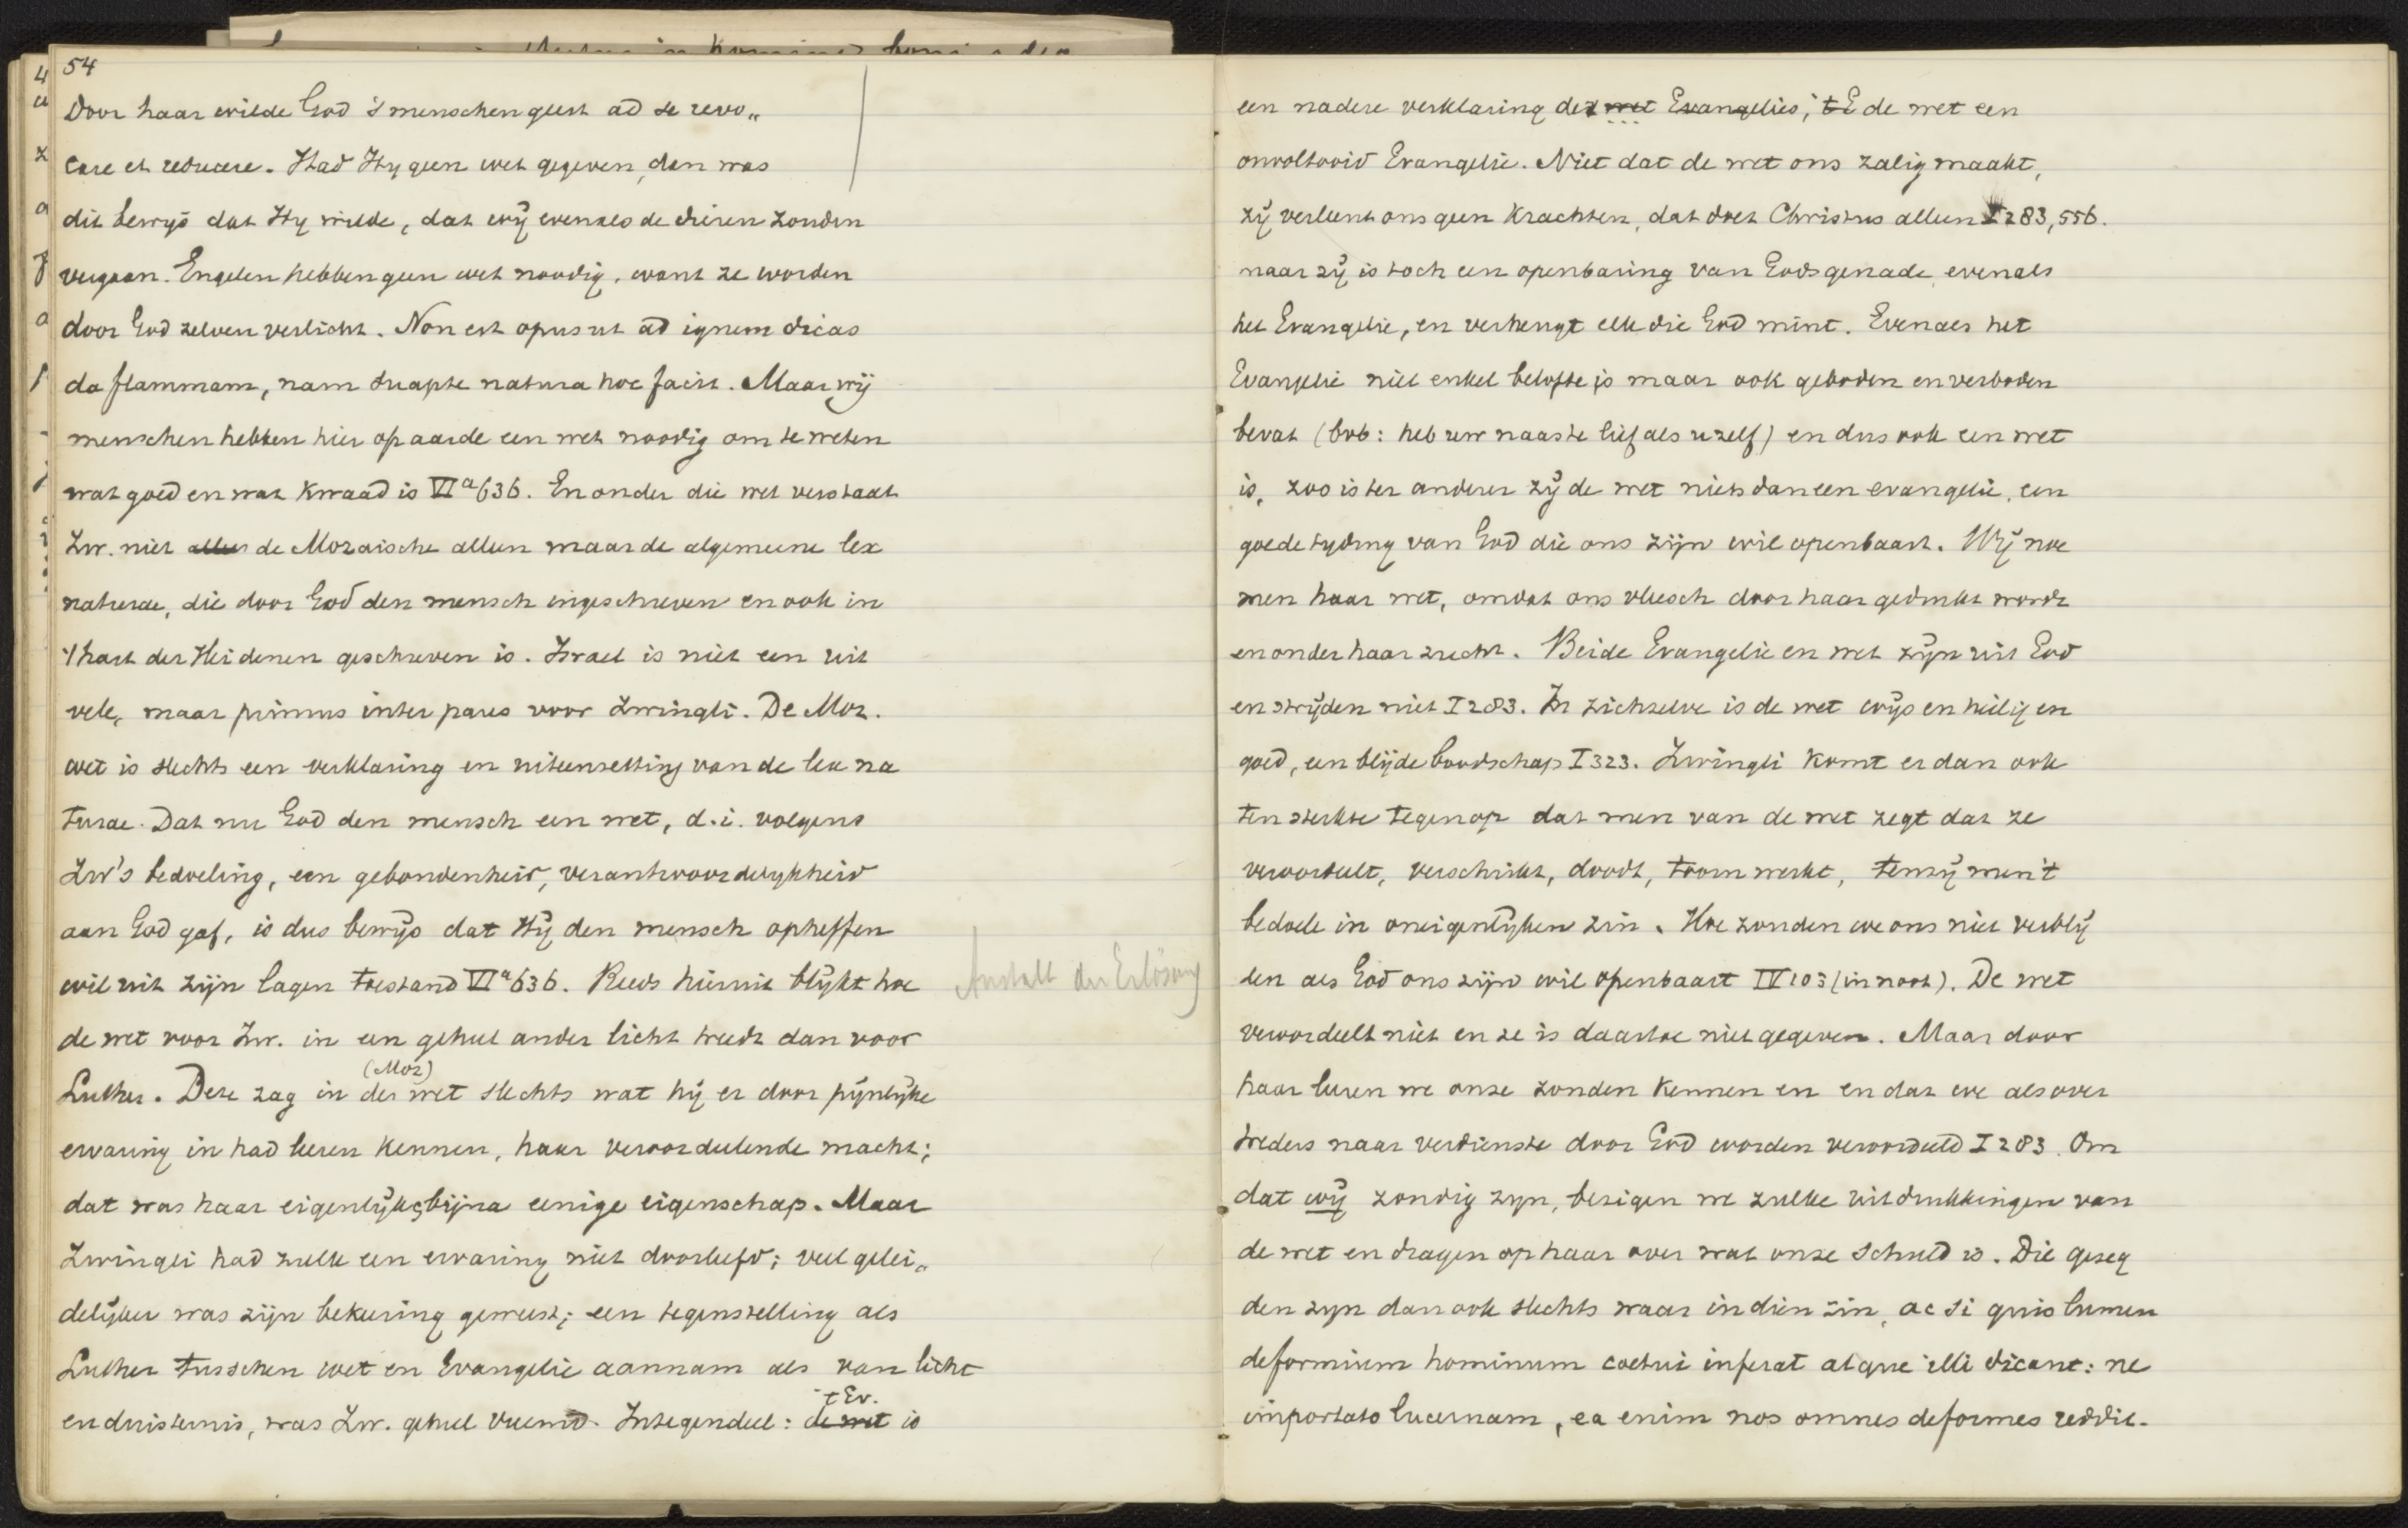 54
Door haar wilde God 's menschen geest ad se revo„
care et reducere. Had Hy geen wet gegeven, dan was
dit bewys dat Hy wilde, dat wij evenals de dieren zouden
vergaan. Engelen hebben geen wet noodig, want ze worden
door God zelven verlicht. Non est opus ut ad ignem dicas
da flammam, nam suapte natura hoc facit. Maar wij
menschen hebben hier op aarde een wet noodig om te weten
wat goed en wat kwaad is VIa 636. En onder die wet verstaat
Zw. niet alleen de Mozaische alleen maar de algemeene lex
naturae, die door God den mensch ingeschreven en ook in
't hart der Heidenen geschreven is. Israel is niet een uit
vele, maar primus inter pares voor Zwingli. De Moz.
wet is slechts een verklaring en uiteenzetting van de lex na
turae. Dat nu God den mensch een wet, d.i. volgens
Zw's bedoeling, een gebondenheid, verantwoordelykheid
aan God gaf, is dus bewijs dat Hij den mensch opheffen
wil uit zijn lagen toestand VIa 636. Reeds hieruit blijkt hoe
Anstalt der Erlösung
de wet voor Zw. in een geheel ander licht treedt dan voor
(Moz)
Luther. Deze zag in der wet slechts wat hij er door pijnlijke
ervaring in had leeren kennen, haar veroordeelende macht;
dat was haar eigenlijke, bijna eenige eigenschap. Maar
Zwingli had zulk een ervaring niet doorleefd; veel gelei„
delijker was zijn bekeering geweest; een tegenstelling als
Luther tusschen wet en Evangelie aannam als van licht
't Ev.
en duisternis, was Zw. geheel vreemd. Integendeel: de wet is
een nadere verklaring der wet Evangelies; t E de wet een
onvoltooid Evangelie. Niet dat de wet ons zalig maakt,
zij verleent ons geen krachten, dat doet Christus alleen I 283, 556.
maar zij is toch een openbaring van Gods genade, evenals
het Evangelie, en verheugt elk die God mint. Evenals het
Evangelie niet enkel belofte is maar ook geboden en verboden
bevat (bvb: heb uw naaste lief als u zelf) en dus ook een wet
is, zoo is ter anderer zijde wet niets dan een evangelie, een
goede tyding van God die ons zijn wil openbaart. Wij noe
men haar wet, omdat ons vleesch door haar gedrukt wordt
en onder haar zucht. Beide Evangelie en wet zijn uit God
en strijden niet I 283. In zichzelve is de wet wijs en heilig en
goed, een blijde boodschap I 323. Zwingli komt er dan ook
ten sterkste tegen op dat men van de wet zegt dat ze
veroordeelt, verschrikt, doodt, toorn werkt, tenzij men 't
bedoele in oneigenlijken zin. Hoe zouden we ons niet verblij
den als God ons zijn wil openbaart IV 103 (in noot). De wet
veroordeelt niet en ze is daartoe niet gegeven. Maar door
haar leeren we onze zonden kennen en en dat we als over
treders naar verdienste door God worden veroordeeld I 283. Om
dat wij zondig zyn, bezigen we zulke uitdrukkingen van
de wet en dragen op haar over wat onze schuld is. Die gezeg
den zyn dan ook slechts waar in dien zin, ac si quis lumen
deformium hominum coetui inferat atque illi dicant: ne
importato lucernam, ea enim nos omnes deformes reddit.